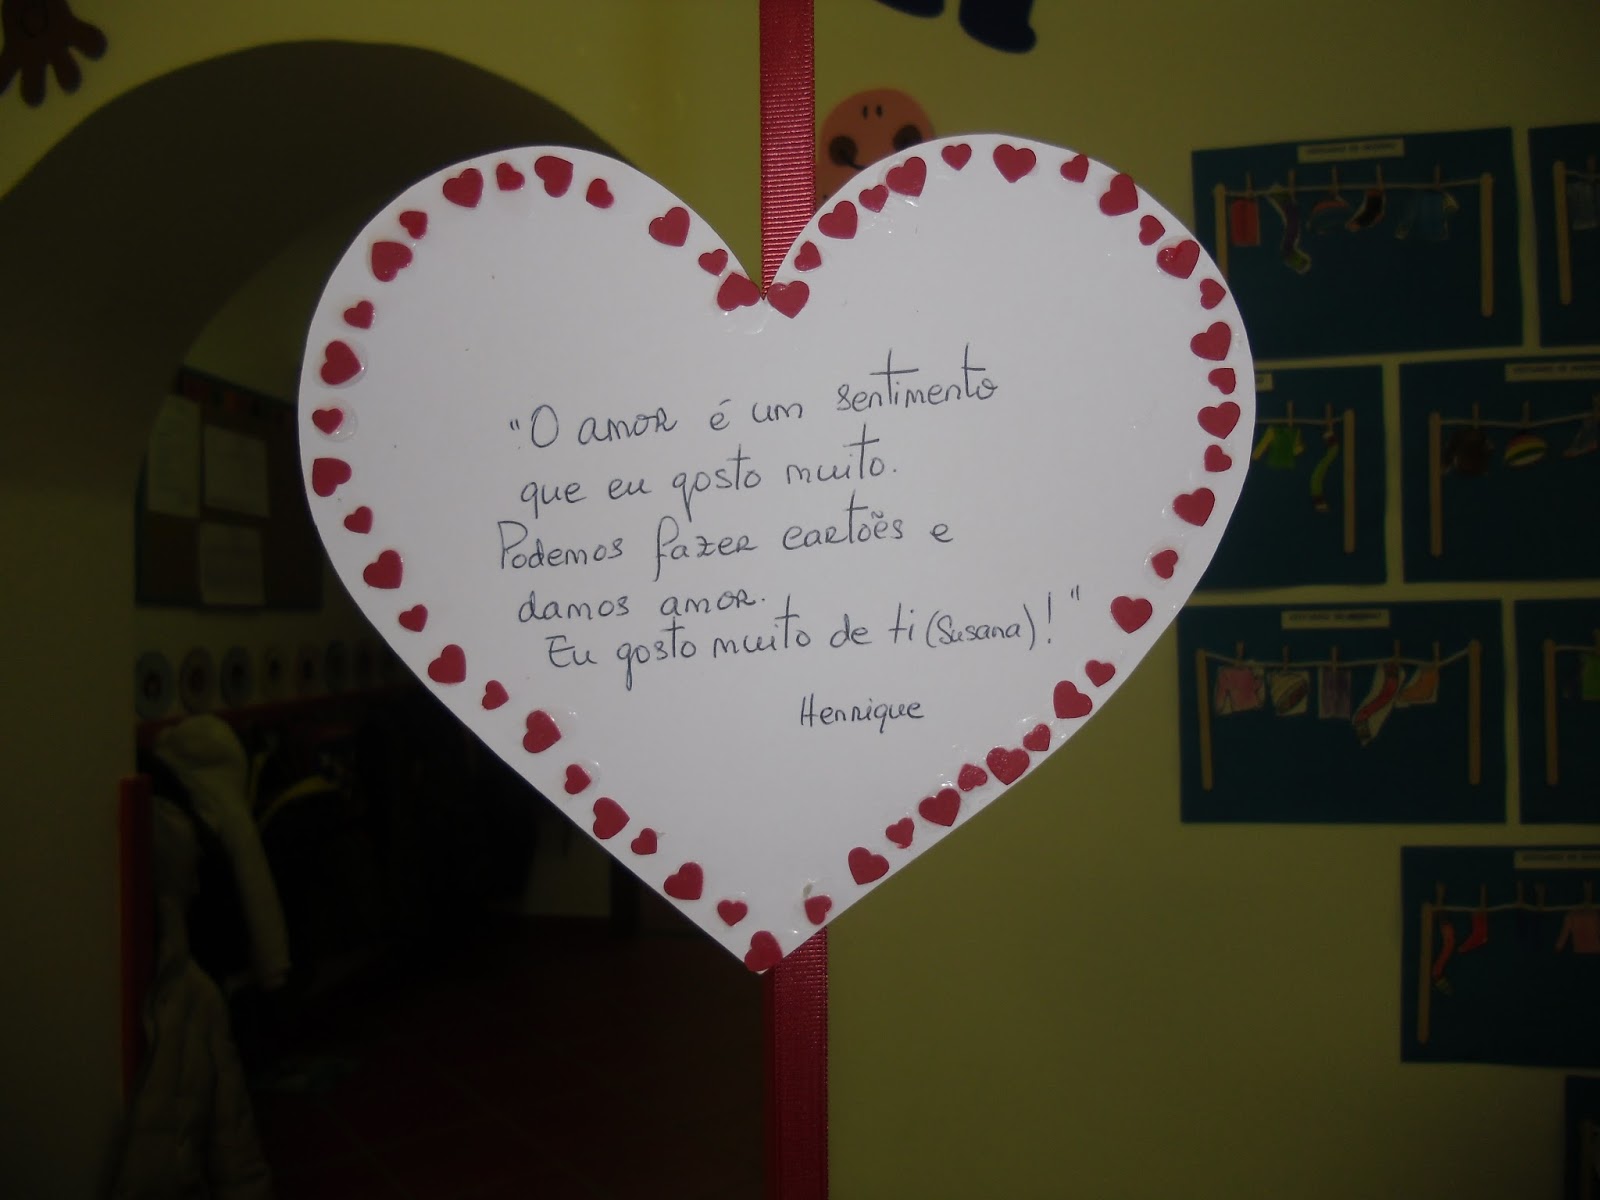 "O amor é um sentimento
que eu gosto muito.
Podemos fazer cartões e
damos amor.
Eu gosto muito de ti (Susana)!"
Henrique